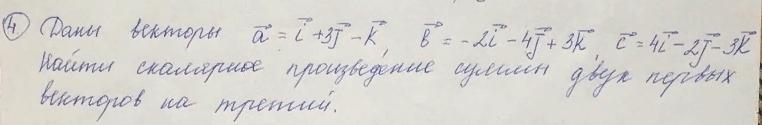 ④ Даны векторы a⃗ = i⃗ + 3j⃗ − k⃗, b⃗ = −2i⃗ − 4j⃗ + 3k⃗, c⃗ = 4i⃗ − 2j⃗ − 3k⃗
Найти скалярное произведение суммы двух первых
векторов на третий.